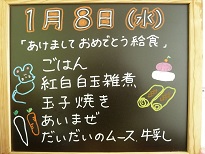 1月8日(水)
「あけましておめでとう給食」
ごはん
紅白白玉雑煮
玉子焼き
あいまぜ
だいだいのムース、牛乳